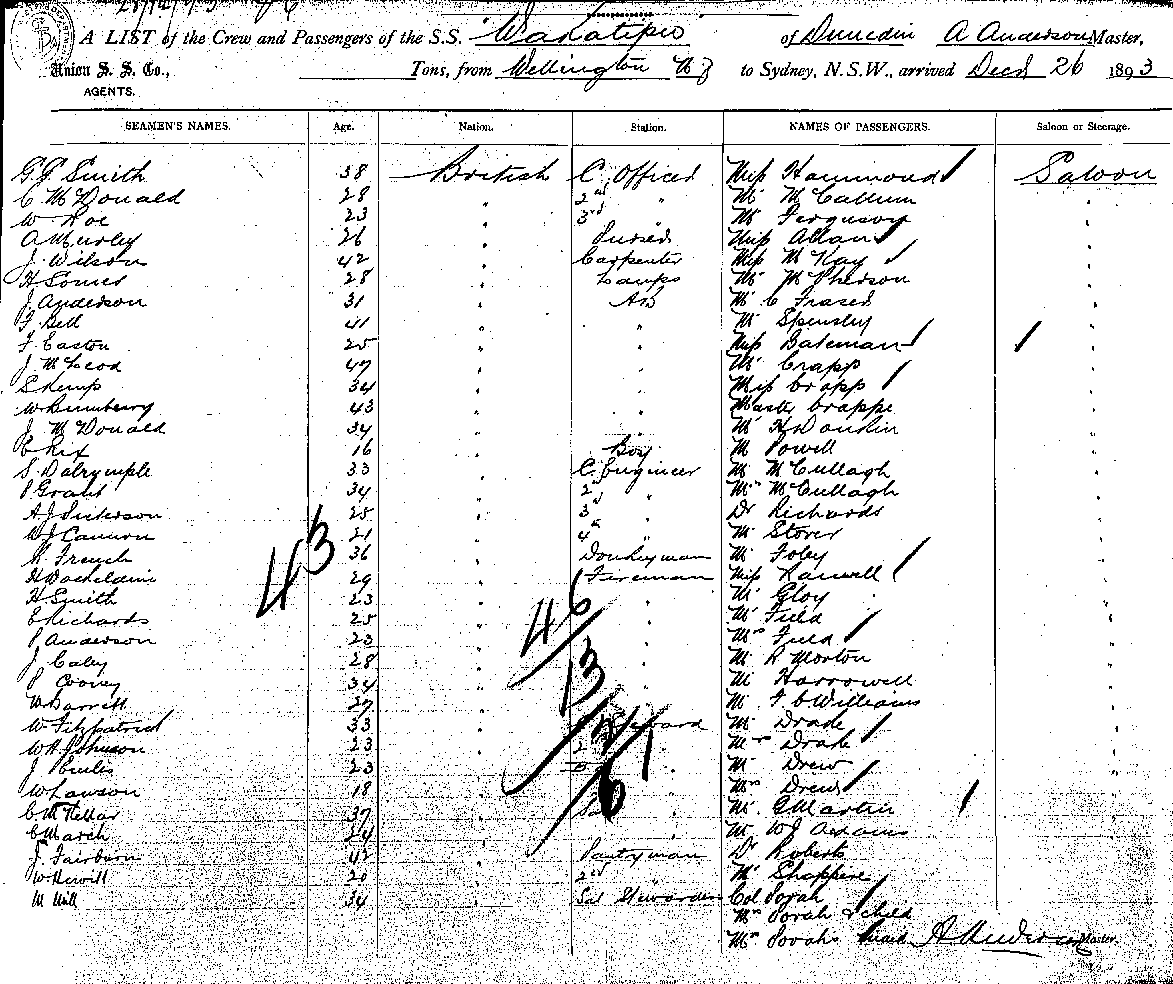 A LIST of the Crew and Passengers of the S.S. Wakatipu of Dunedin A Anderson Master,
Union S. S. Co., Tons, from Wellington NZ to Sydney, N.S.W., arrived Decr 26 1893
AGENTS.
SEAMEN'S NAMES. Age. Nation. Station. NAMES OF PASSENGERS. Saloon or Steerage.
G J Smith 38 British C. Officer Miss Hammond Saloon
C McDonald 28 " 2nd " Mr McCallum "
W Roe 23 " 3rd Mr Ferguson "
A Murley 26 " Purser Miss Allan "
J. Wilson 42 " Carpenter Miss McKay "
H Somer 28 " Lamps Mr McPherson "
J Anderson 31 " AB Mr C Fraser "
F Bell 41 " " Mr Spensley "
F. Easton 25 " " Miss Bateman "
J. McLeod 47 " " Mr Crapp "
S Kemp 34 " " Miss Crapp "
43 " " Master Crapp "
J McDonald 34 " " Mr
E Rix 16 " Boy Mr Powell "
S. Dalrymple 33 " C. Engineer Mr McCullagh "
P Grant 34 " 2nd " Mrs McCullagh "
A J Dickerson 25 " 3rd " Dr Richards "
D J Cannon 21 " 4th " Mr Storer "
French 36 " Donkeyman Mr Foley "
29 " Fireman Miss Ranwell "
43
H Smith 23 " " Mr Gloy "
E Richards 25 " " Mr Field "
46
P Anderson 23 " " Mrs Field "
J Caley 28 " " Mr R Morton "
13
P Cooney 34 " " Mr Harrowell "
W Barrett 27 " " Mr F C Williams "
W Fitzpatrick 33 " Steward Mr Drake "
W H Johnson 23 " 2nd " Mrs Drake "
J 23 " " Mr Drew "
W Lawson 18 " " Mrs Drew "
6
C McKellar 37 " " Mr C Martin "
C March 24 " " Mr W J Adams "
J. Fairburn 42 " Pantryman Dr Roberts "
W Hewitt 20 " 2nd " Mr Shappere "
M Hill 34 " Sal Stewardess Col Sorah "
Mrs Sorah & child
Mrs Sorahs maid A Anderson Master.